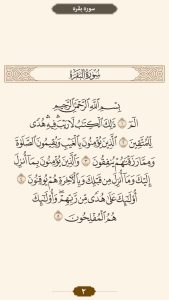 سوره بقره
سُورَةُ البَقَرَةِ
بِسْمِ اللَّهِ الرَّحْمَٰنِ الرَّحِيمِ
الٓمٓ ١ ذَٰلِكَ الْكِتَٰبُ لَا رَيْبَ فِيهِ هُدًى
لِّلْمُتَّقِينَ ٢ الَّذِينَ يُؤْمِنُونَ بِالْغَيْبِ وَيُقِيمُونَ الصَّلَوٰةَ
وَمِمَّا رَزَقْنَٰهُمْ يُنفِقُونَ ٣ وَالَّذِينَ يُؤْمِنُونَ بِمَا أُنزِلَ
إِلَيْكَ وَمَا أُنزِلَ مِن قَبْلِكَ وَبِالْآخِرَةِ هُمْ يُوقِنُونَ ٤
أُولَٰئِكَ عَلَىٰ هُدًى مِّن رَّبِّهِمْ وَأُولَٰئِكَ
هُمُ الْمُفْلِحُونَ ٥
٢